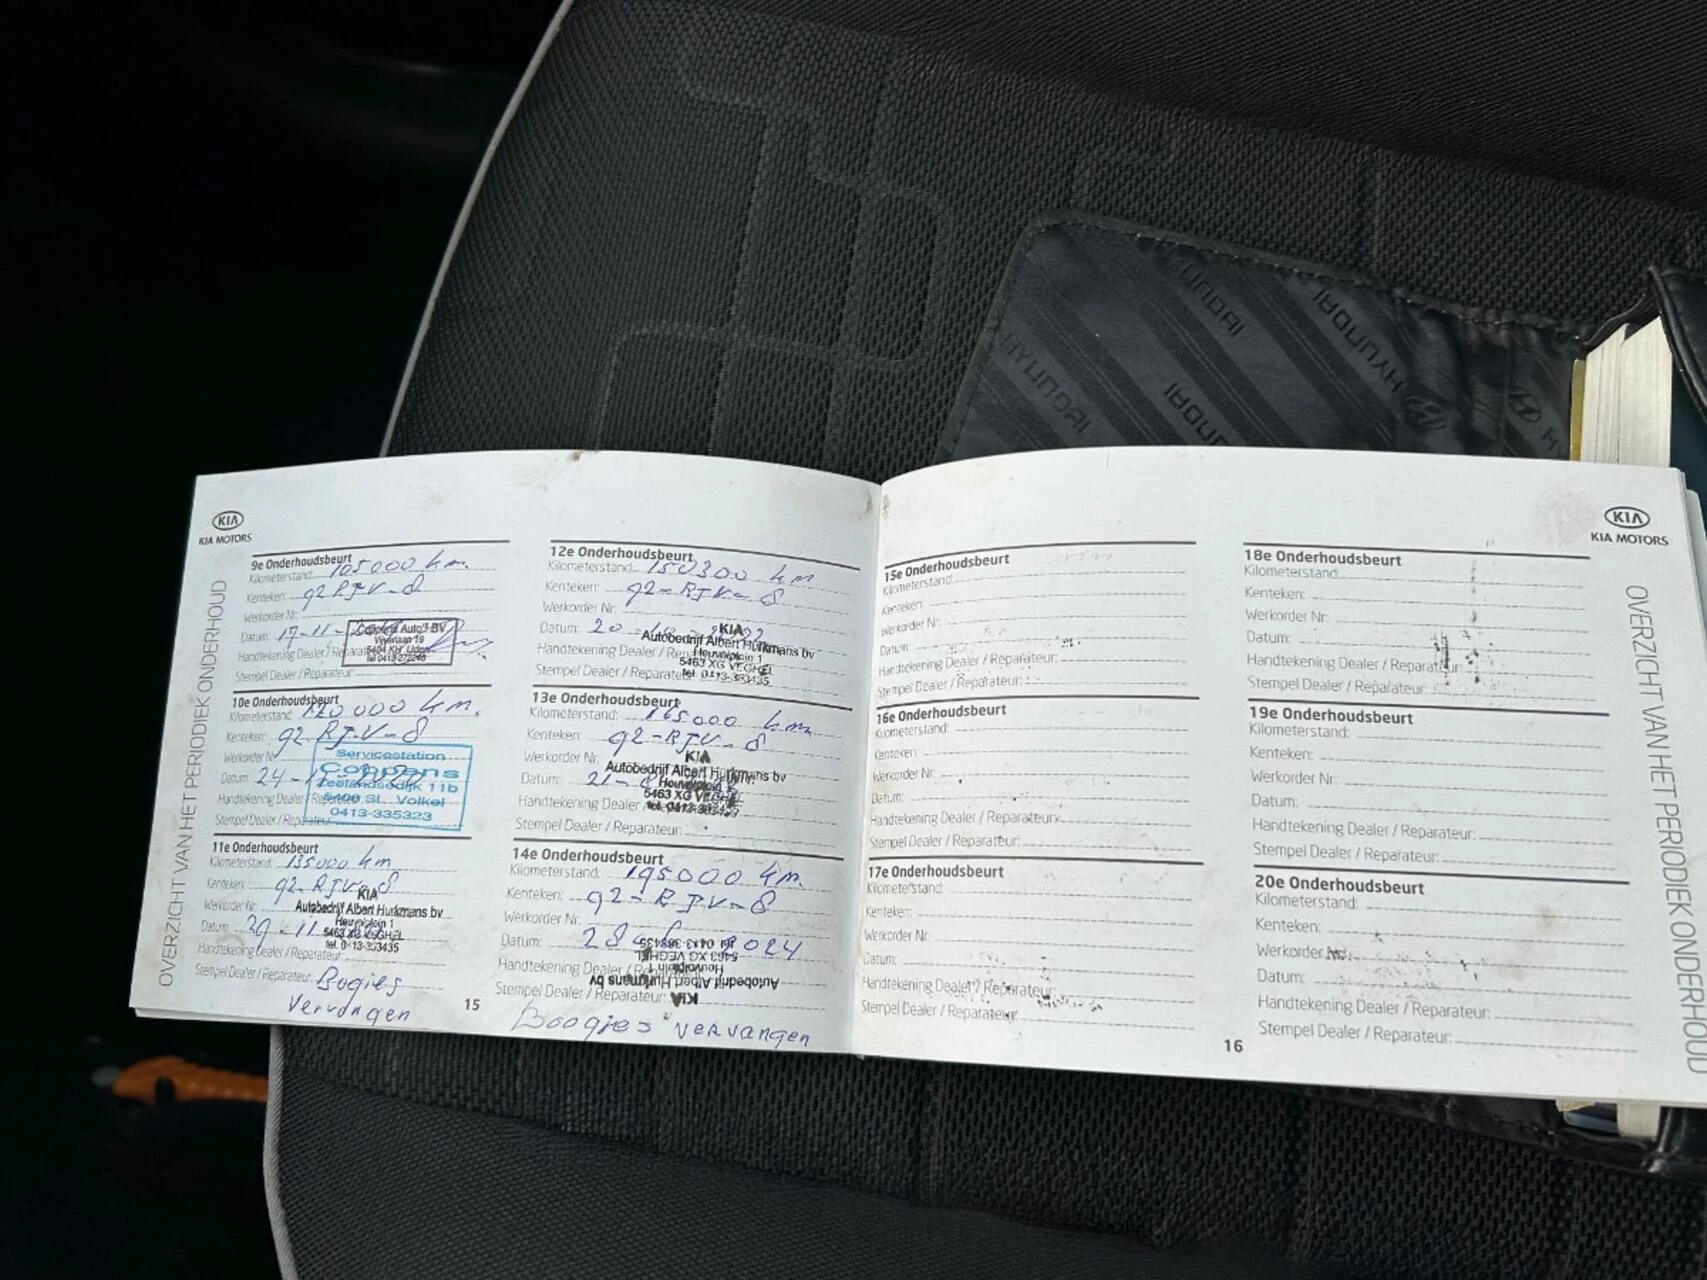 HYUNDAI
HYUNDAI
HYUNDAI
KIA
KIA MOTORS
OVERZICHT VAN HET PERIODIEK ONDERHOUD
9e Onderhoudsbeurt
Kilometerstand: 105000 km.
Kenteken: 92 RJV-8
Werkorder Nr:
Datum: 17-11-
Handtekening Dealer / Reparateur:
Stempel Dealer / Reparateur:
Auto's BV
5404 KH Uden
tel 0413-272246
10e Onderhoudsbeurt
Kilometerstand: 120000 km.
Kenteken: 92 RJV-8
Werkorder Nr
Datum: 24-11-2020
Handtekening Dealer / Reparateur:
Stempel Dealer / Reparateur:
Servicestation
Coppens
Zeelandsedijk 11b
5408 SL Volkel
0413-335323
11e Onderhoudsbeurt
Kilometerstand: 135000 km
Kenteken: 92-RJV-8
Werkorder Nr:
Datum: 29-11-
Handtekening Dealer / Reparateur:
Stempel Dealer / Reparateur: Bogies
vervangen
KIA
Autobedrijf Albert Hurkmans bv
Heuvelplein 1
5463 XG VEGHEL
tel. 0413-363435
15
12e Onderhoudsbeurt
Kilometerstand: 150300 km
Kenteken: 92-RJV-8
Werkorder Nr:
Datum: 20
Handtekening Dealer / Reparateur:
Stempel Dealer / Reparateur:
KIA
Autobedrijf Albert Hurkmans bv
Heuvelplein 1
5463 XG VEGHEL
tel. 0413-363435
13e Onderhoudsbeurt
Kilometerstand: 165000 km
Kenteken: 92-RJV-8
Werkorder Nr:
Datum: 21-
Handtekening Dealer / Reparateur:
Stempel Dealer / Reparateur:
KIA
Autobedrijf Albert Hurkmans bv
Heuvelplein 1
5463 XG VEGHEL
tel. 0413-363435
14e Onderhoudsbeurt
Kilometerstand: 195000 km.
Kenteken: 92-RJV-8
Werkorder Nr:
Datum: 28 2024
Handtekening Dealer / Reparateur:
Stempel Dealer / Reparateur:
KIA
Autobedrijf Albert Hurkmans bv
Heuvelplein 1
5463 XG VEGHEL
tel. 0413-363435
Boogies vervangen
15e Onderhoudsbeurt
Kilometerstand:
Kenteken:
Werkorder Nr:
Datum:
Handtekening Dealer / Reparateur:
Stempel Dealer / Reparateur:
16e Onderhoudsbeurt
Kilometerstand:
Kenteken:
Werkorder Nr:
Datum:
Handtekening Dealer / Reparateur:
Stempel Dealer / Reparateur:
17e Onderhoudsbeurt
Kilometerstand:
Kenteken:
Werkorder Nr:
Datum:
Handtekening Dealer / Reparateur:
Stempel Dealer / Reparateur:
16
18e Onderhoudsbeurt
Kilometerstand:
Kenteken:
Werkorder Nr:
Datum:
Handtekening Dealer / Reparateur:
Stempel Dealer / Reparateur:
19e Onderhoudsbeurt
Kilometerstand:
Kenteken:
Werkorder Nr:
Datum:
Handtekening Dealer / Reparateur:
Stempel Dealer / Reparateur:
20e Onderhoudsbeurt
Kilometerstand:
Kenteken:
Werkorder Nr:
Datum:
Handtekening Dealer / Reparateur:
Stempel Dealer / Reparateur:
KIA
KIA MOTORS
OVERZICHT VAN HET PERIODIEK ONDERHOUD